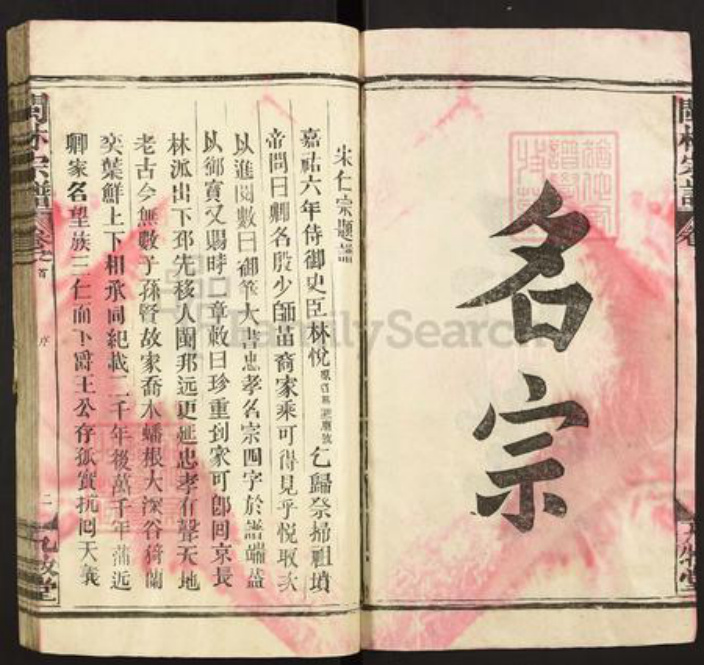 名宗
宋仁宗題譜
嘉祐六年侍御史臣林悅乞歸祭掃祖墳
帝問曰卿名殷少師苗裔家乘可得見乎悅取次
以進閱數日御筆大書忠孝名宗四字於譜端蓋
以御寶又賜時一章敕曰珍重到家可卽回京長
林派出下邳先移人閩邦远更延忠孝有聲天地
老古今無數子孫賢故家喬木蟠根大深谷猗蘭
奕葉鮮上下相承同紀載二千年後萬千年蒲近
卿家名望族三仁面下爵王公存孤實抗同天義
閩林宗譜
卷之首
序
二
九牧堂
閩林宗譜
卷
九牧堂
FamilySearch